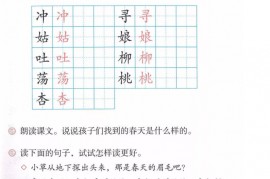 冲 冲 寻 寻
姑 姑 娘 娘
吐 吐 柳 柳
荡 荡 桃 桃
杏 杏
朗读课文。说说孩子们找到的春天是什么样的。
读下面的句子，试试怎样读更好。
◇ 小草从地下探出头来，那是春天的眉毛吧？